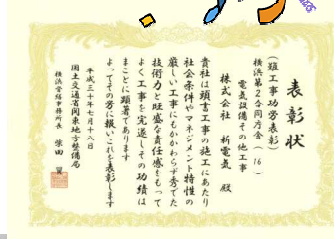 表彰状
（難工事功労表彰）
横浜第２合同庁舎（１６）
電気設備その他工事
株式会社 新電気 殿
貴社は頭書工事の施工にあたり
社会条件やマネジメント特性の
厳しい工事にもかかわらず秀でた
技術力と旺盛な責任感をもって
よく工事を完遂しその功績は
まことに顕著であります
よってその労に報いこれを表彰します
平成三十年七月十八日
国土交通省関東地方整備局
横浜営繕事務所長 柴田